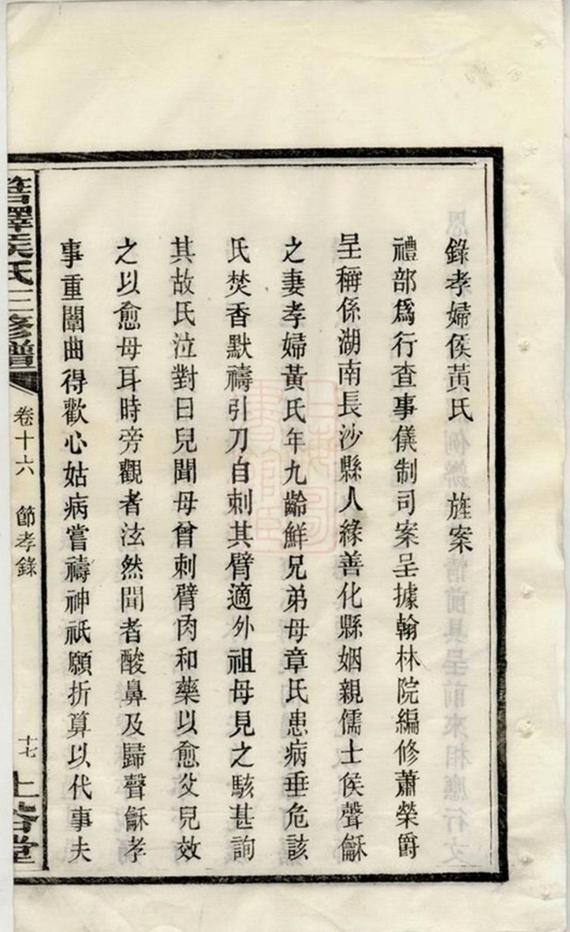 錄孝婦侯黃氏　旌案
禮部爲行查事儀制司案呈據翰林院編修蕭榮爵
呈稱係湖南長沙縣人緣善化縣姻親儒士侯聲龢
之妻孝婦黃氏年九齡鮮兄弟母章氏患病垂危該
氏焚香默禱引刀自刺其臂適外祖母見之駭甚詢
其故氏泣對曰兒聞母曾刺臂肉和藥以愈父兒效
之以愈母耳時旁觀者泫然聞者酸鼻及歸聲龢孝
事重闈曲得歡心姑病嘗禱神祇願折算以代事夫
侯氏三修譜
卷十六　節孝錄
十七
上谷堂